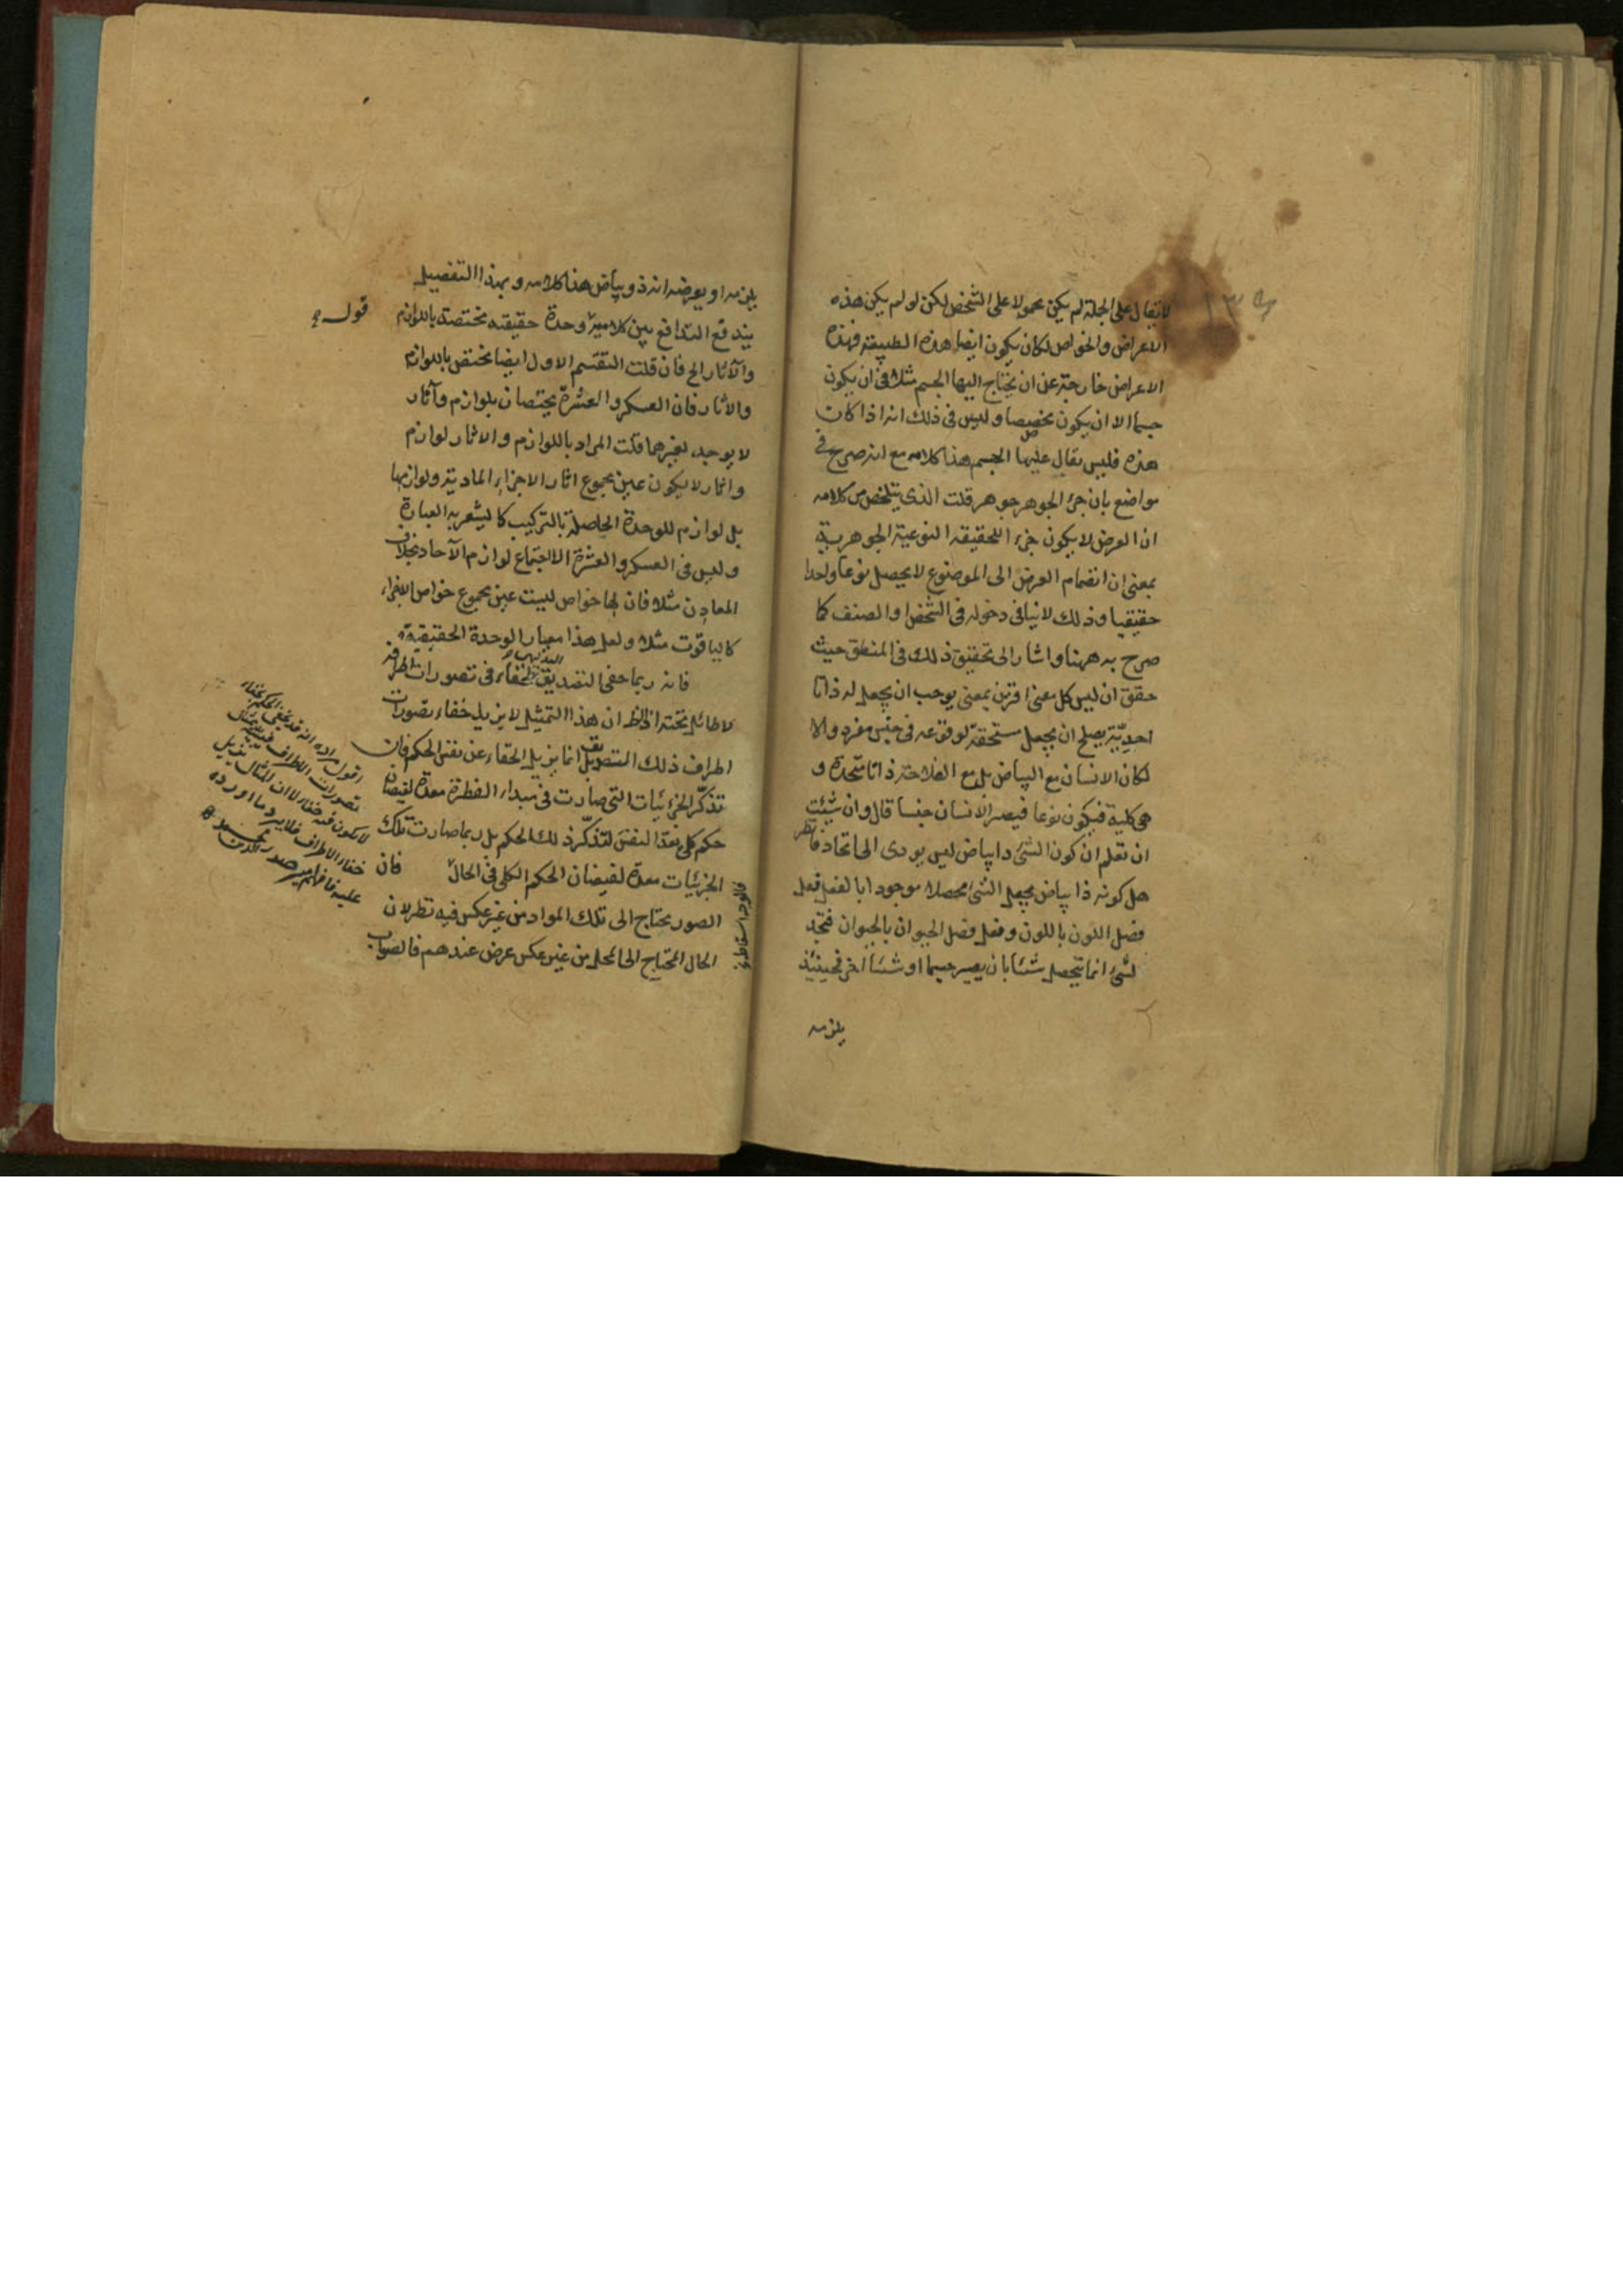 لا تقال على الجملة لم يكن محمولا على الشخص لكن لو لم يكن هذه
الاعراض والخواص لكان يكون ايضا هذه الطبيعة فهذه
الاعراض خارجة عن ان يحتاج اليها الجسم مثلا فى ان يكون
جسما الا ان يكون مخصصا وليس فى ذلك انه اذا كانت
هذه فليس يقال عليها الجسم هذا كلامه مع انه صرح فى
مواضع بان جزء الجوهر جوهر قلت الذى يتلخص من كلامه
ان العرض لا يكون جزء اللحقيقة النوعية الجوهرية
بمعنى ان انضمام العرض الى الموضوع لا يحصل نوعا واحدا
حقيقيا وذلك لا ينافى دخوله فى الشخص او الصنف كما
صرح به ههنا واشار الى تحقيق ذلك فى المنطق حيث
حقق ان ليس كل معنى اقترن بمعنى يوجب ان يجعل له ذاتا
احدية يصلح ان يجعل مستحقة لوقوعه فى جنس مفرد والا
لكان الانسان مع البياض بل مع الفلاحة ذاتا متحدة و
هى كلية فيكون نوعا فيصير الانسان جنسا قال وان شئت
ان تعلم ان كون الشئ ذا بياض ليس يودى الى اتحاد فانظر
هل كونه ذا بياض يجعل الشئ محصلا موجودا بالفعل فعل
فصل اللون باللون وفعل فصل الحيوان بالحيوان فتجد
لشئ انما يتحصل شئا بان يصير جسما او شئا اخر فحينئذ
يلزمه
يلزمه او يعرضه انه ذو بياض هذا كلامه وبهذا التفصيل
يندفع التدافع بين كلاميه وحدة حقيقته مختصة باللوازم
قوله
والآثار الخ فان قلت التقسيم الاول ايضا مختص باللوازم
والاثار فان العسكر والعشرة يختصان بلوازم وآثار
لا يوجد لغيرهما قلت المراد باللوازم والاثار لوازم
واثار لا يكون عين مجموع اثار الاجزاء المادية ولوازمها
بل لوازم للوحدة الحاصلة بالتركيب كما يشعر به العبارة
وليس فى العسكر والعشرة الا اجتماع لوازم الآحاد بخلاف
المعادن مثلا فان لها خواص ليست عين مجموع خواص الاجزاء
كالياقوت مثلا ولعل هذا معيار الوحدة الحقيقية
فانه ربما خفى التصديق لخفاء فى تصورات اطرافه
لا طائل تحته اذ الظ ان هذا التمثيل لا يزيل خفاء تصورات
اطراف ذلك التصديق انما يزيل الخفاء عن نفس الحكم فان
تذكر الجزئيات التى صارت فى مبداء الفطرة معدة لفيضان
حكم كلى تعد النفس لتذكر ذلك الحكم بل ربما صارت تلك
الجزئيات معدة لفيضان الحكم الكلى فى الحال فان
الصور يحتاج الى تلك المواد من غير عكس فيه نظر لان
الحال المحتاج الى المحل من غير عكس عرض عندهم فالصواب